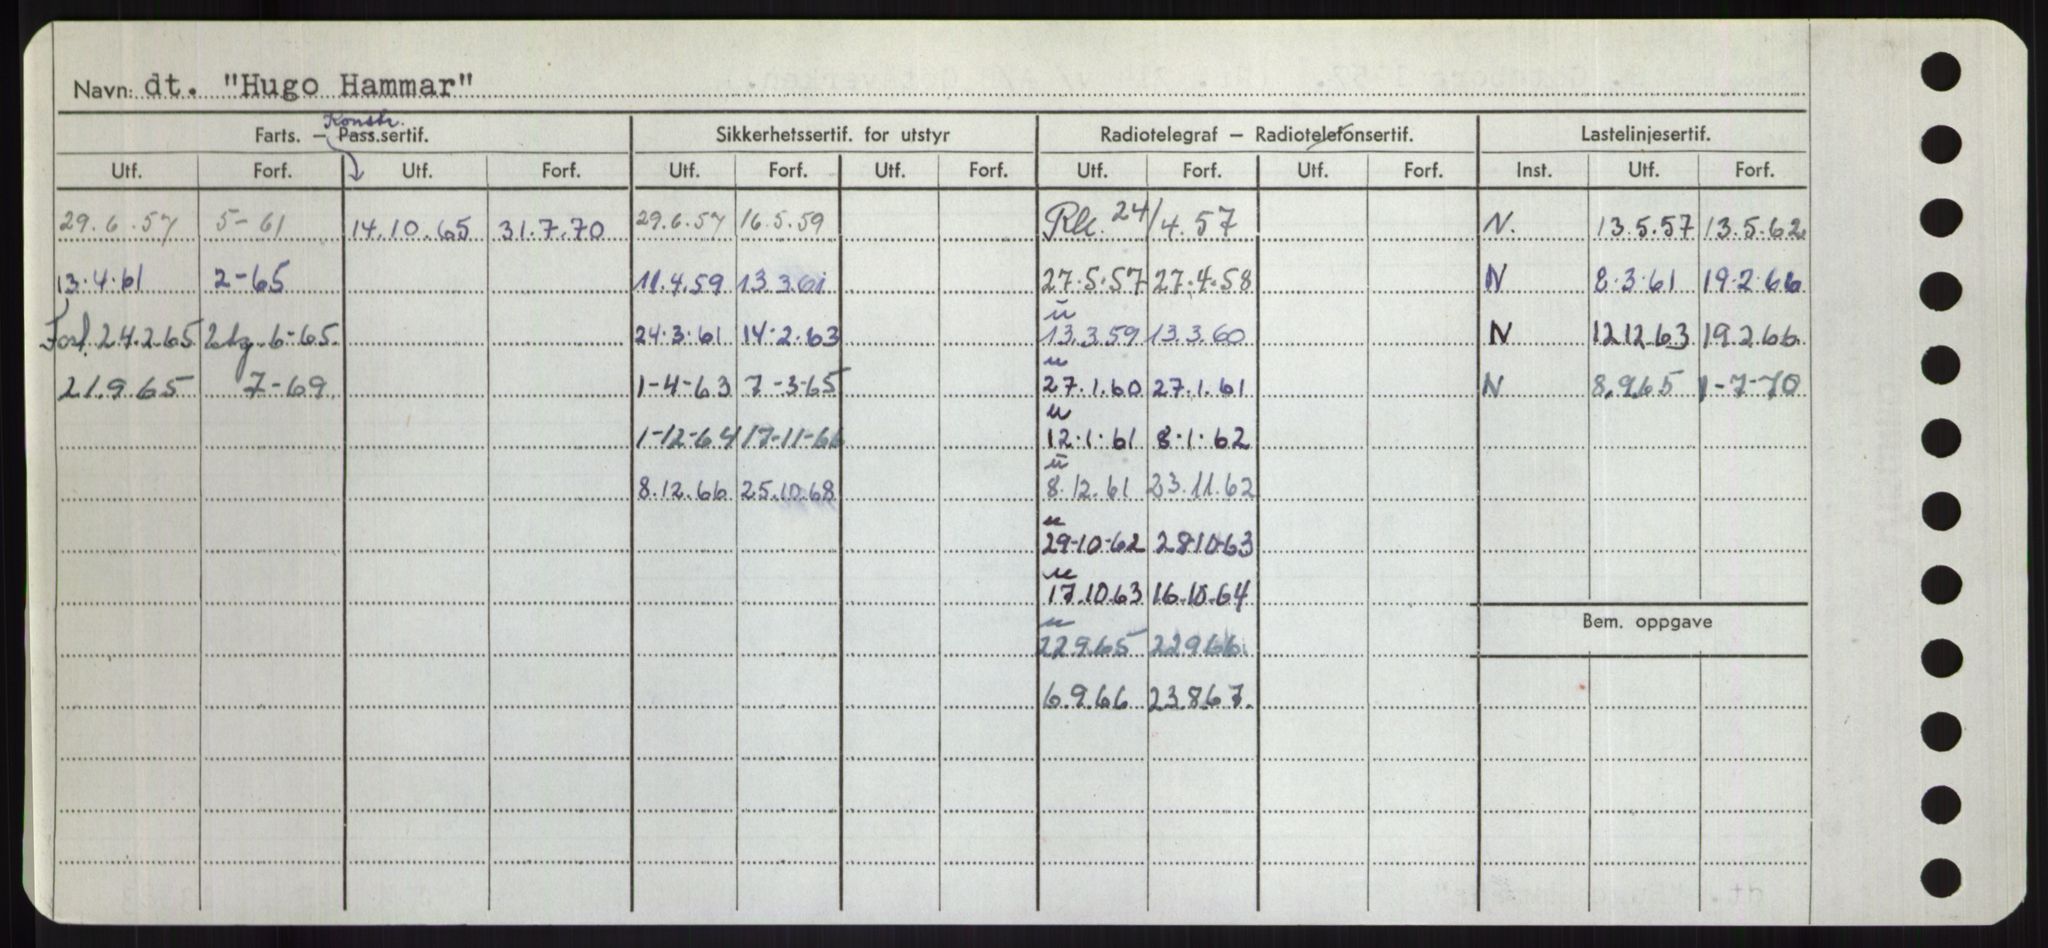 Navn: dt. "Hugo Hammar"
Konstr.
Farts. – Pass.sertif. Sikkerhetssertif. for utstyr Radiotelegraf – Radiotelefonsertif. Lastelinjesertif.
Utf. Forf. Utf. Forf. Utf. Forf. Utf. Forf. Utf. Forf. Utf. Forf. Inst. Utf. Forf.
29.6.57 5-61 14.10.65 31.7.70 29.6.57 16.5.59 24/4.57 N. 13.5.57 13.5.62
13.4.61 2-65 11.4.59 13.3.61 27.5.57 27.4.58 N 8.3.61 19.2.66
Forl. 24.2.65 utg. 6-65. 24.3.61 14.2.63 13.3.59 13.3.60 N 12.12.63 19.2.66
21.9.65 7-69 1-4-63 7-3-65 27.1.60 27.1.61 N 8.9.65 1-7-70
1-12-64 17-11-66 12.1.61 8.1.62
8.12.66 25.10.68 8.12.61 23.11.62
29-10-62 28-10-63
17.10.63 16.10.64
Bem. oppgave
22.9.65 22.9.66
6.9.66 23.8.67.